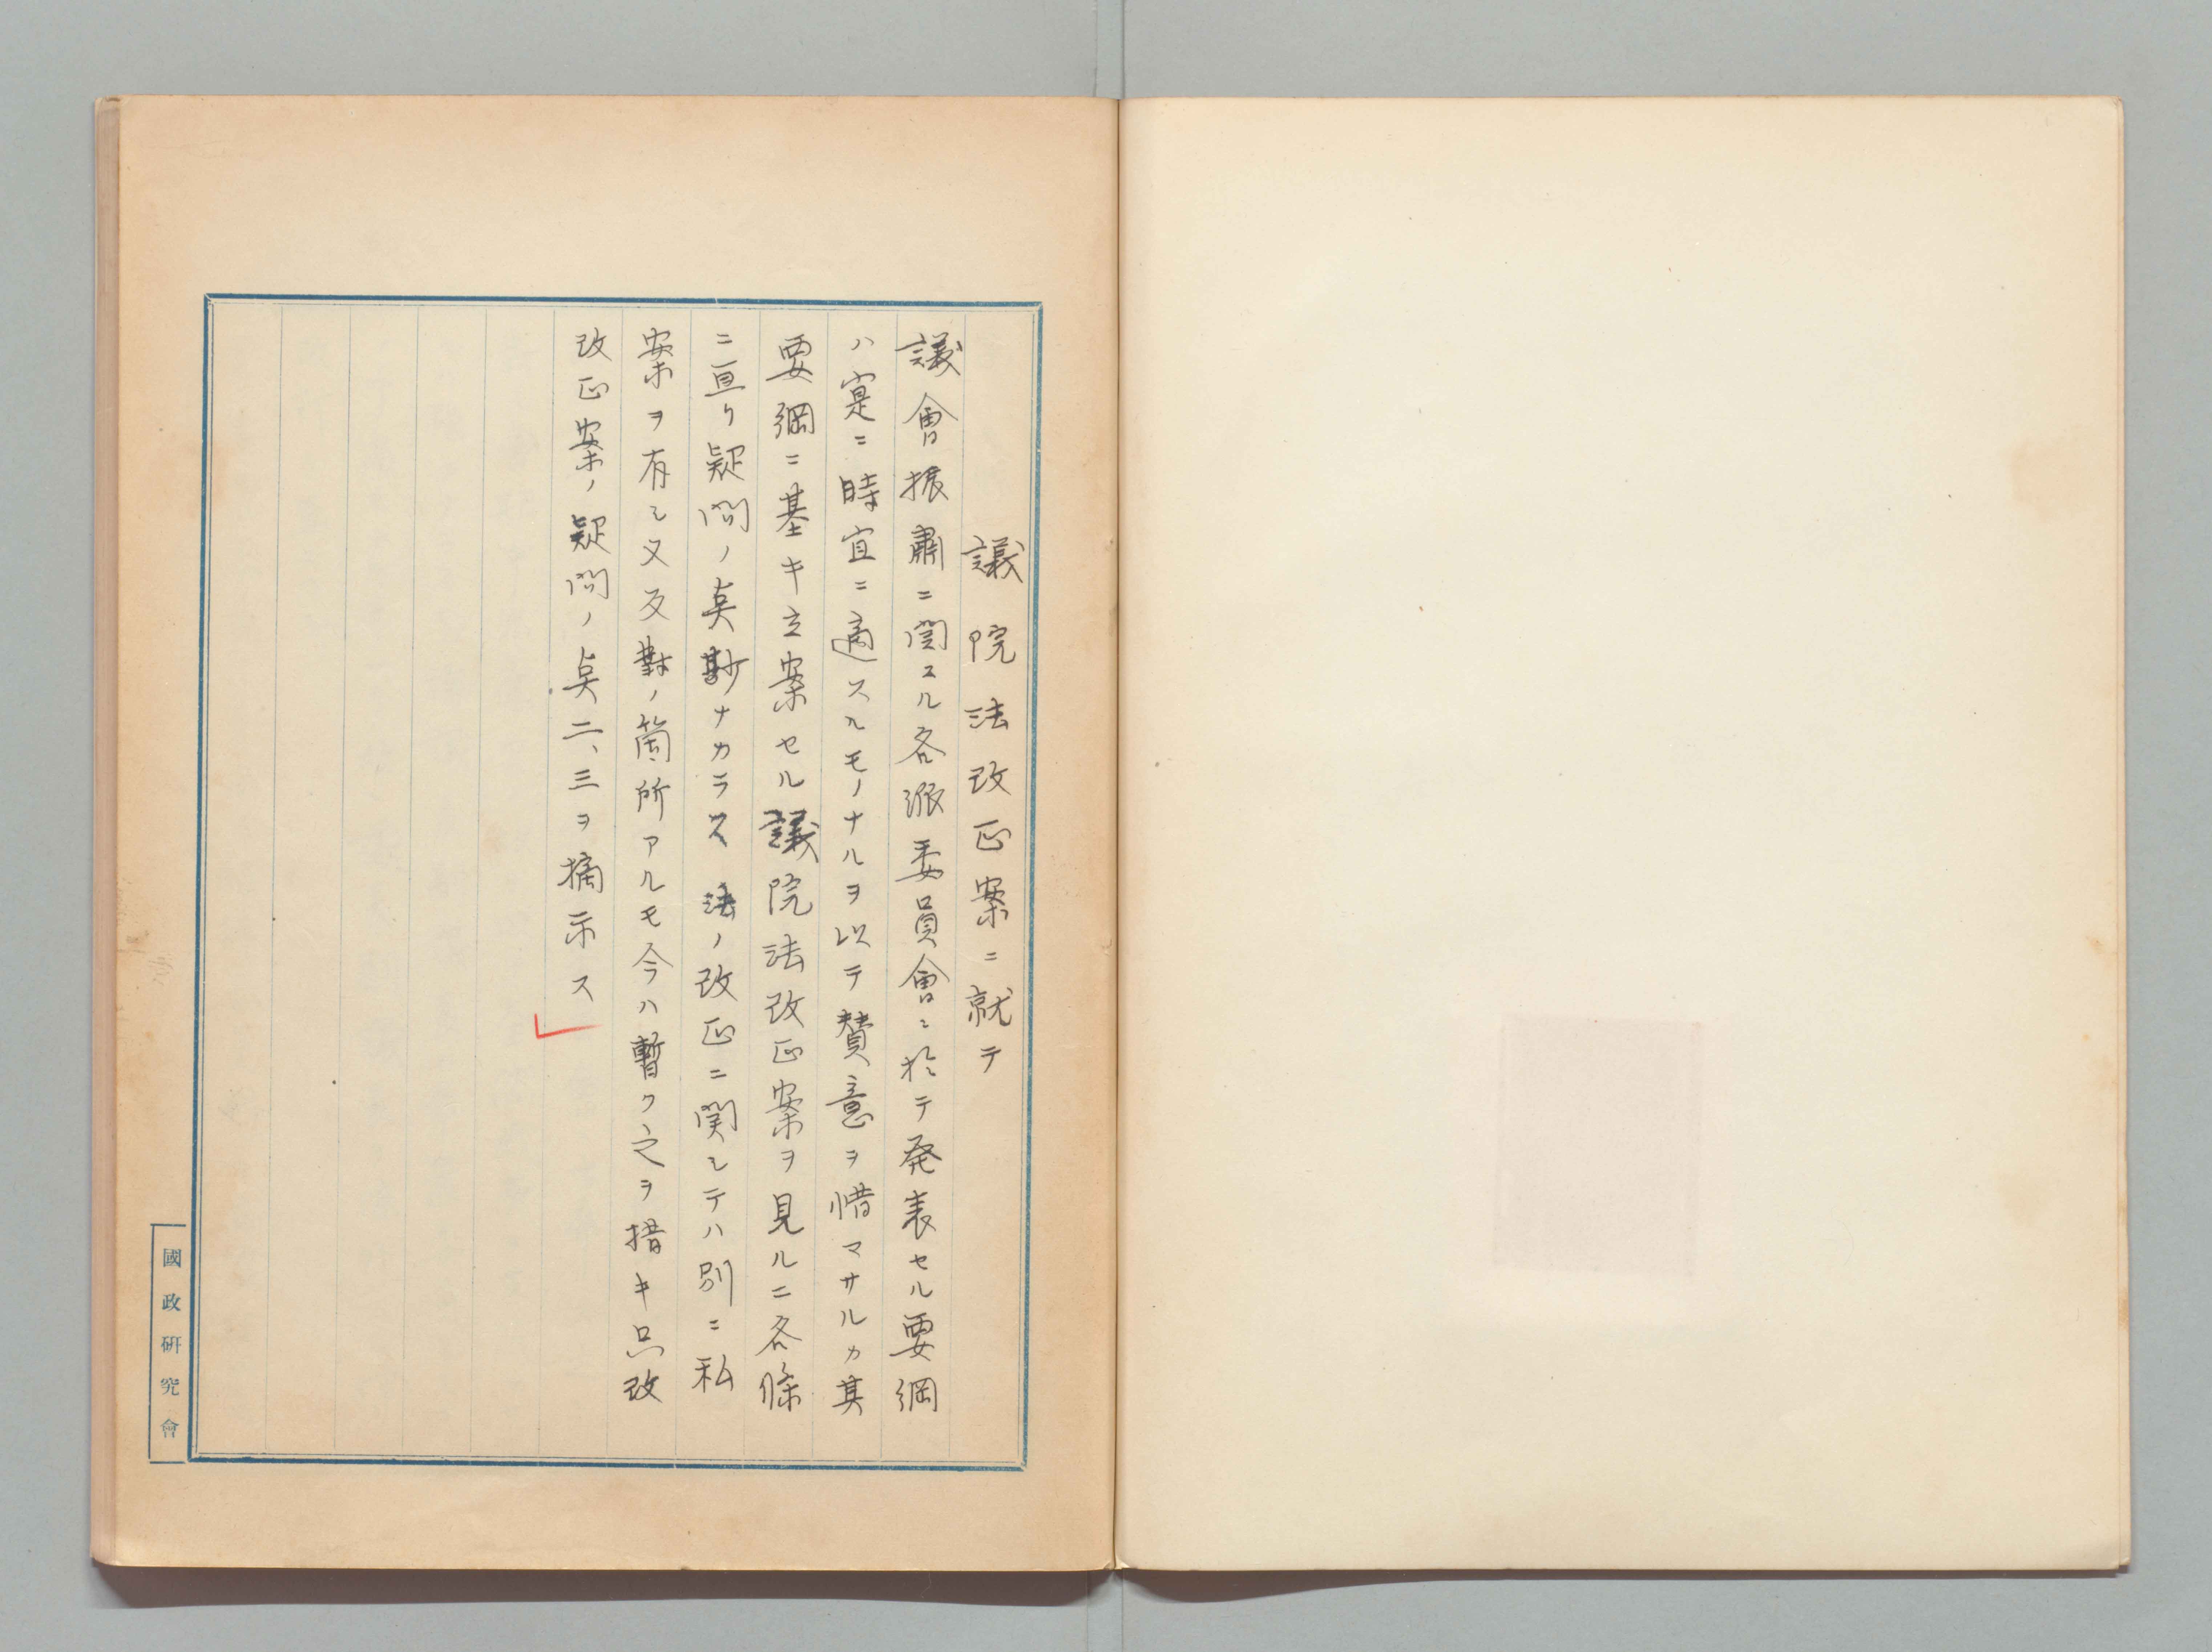 議院法改正案ニ就テ
議會振肅ニ関スル各派委員會ニ於テ発表セル要綱
ハ寔ニ時宜ニ適スルモノナルヲ以テ賛意ヲ惜マサルカ其
要綱ニ基キ立案セル議院法改正案ヲ見ルニ各條
ニ亘リ疑問ノ点尠ナカラス法ノ改正ニ関シテハ別ニ私
案ヲ有シ又反對ノ箇所アルモ今ハ暫ク之ヲ措キ只改
改正案ノ疑問ノ点二、三ヲ摘示ス
國政研究會